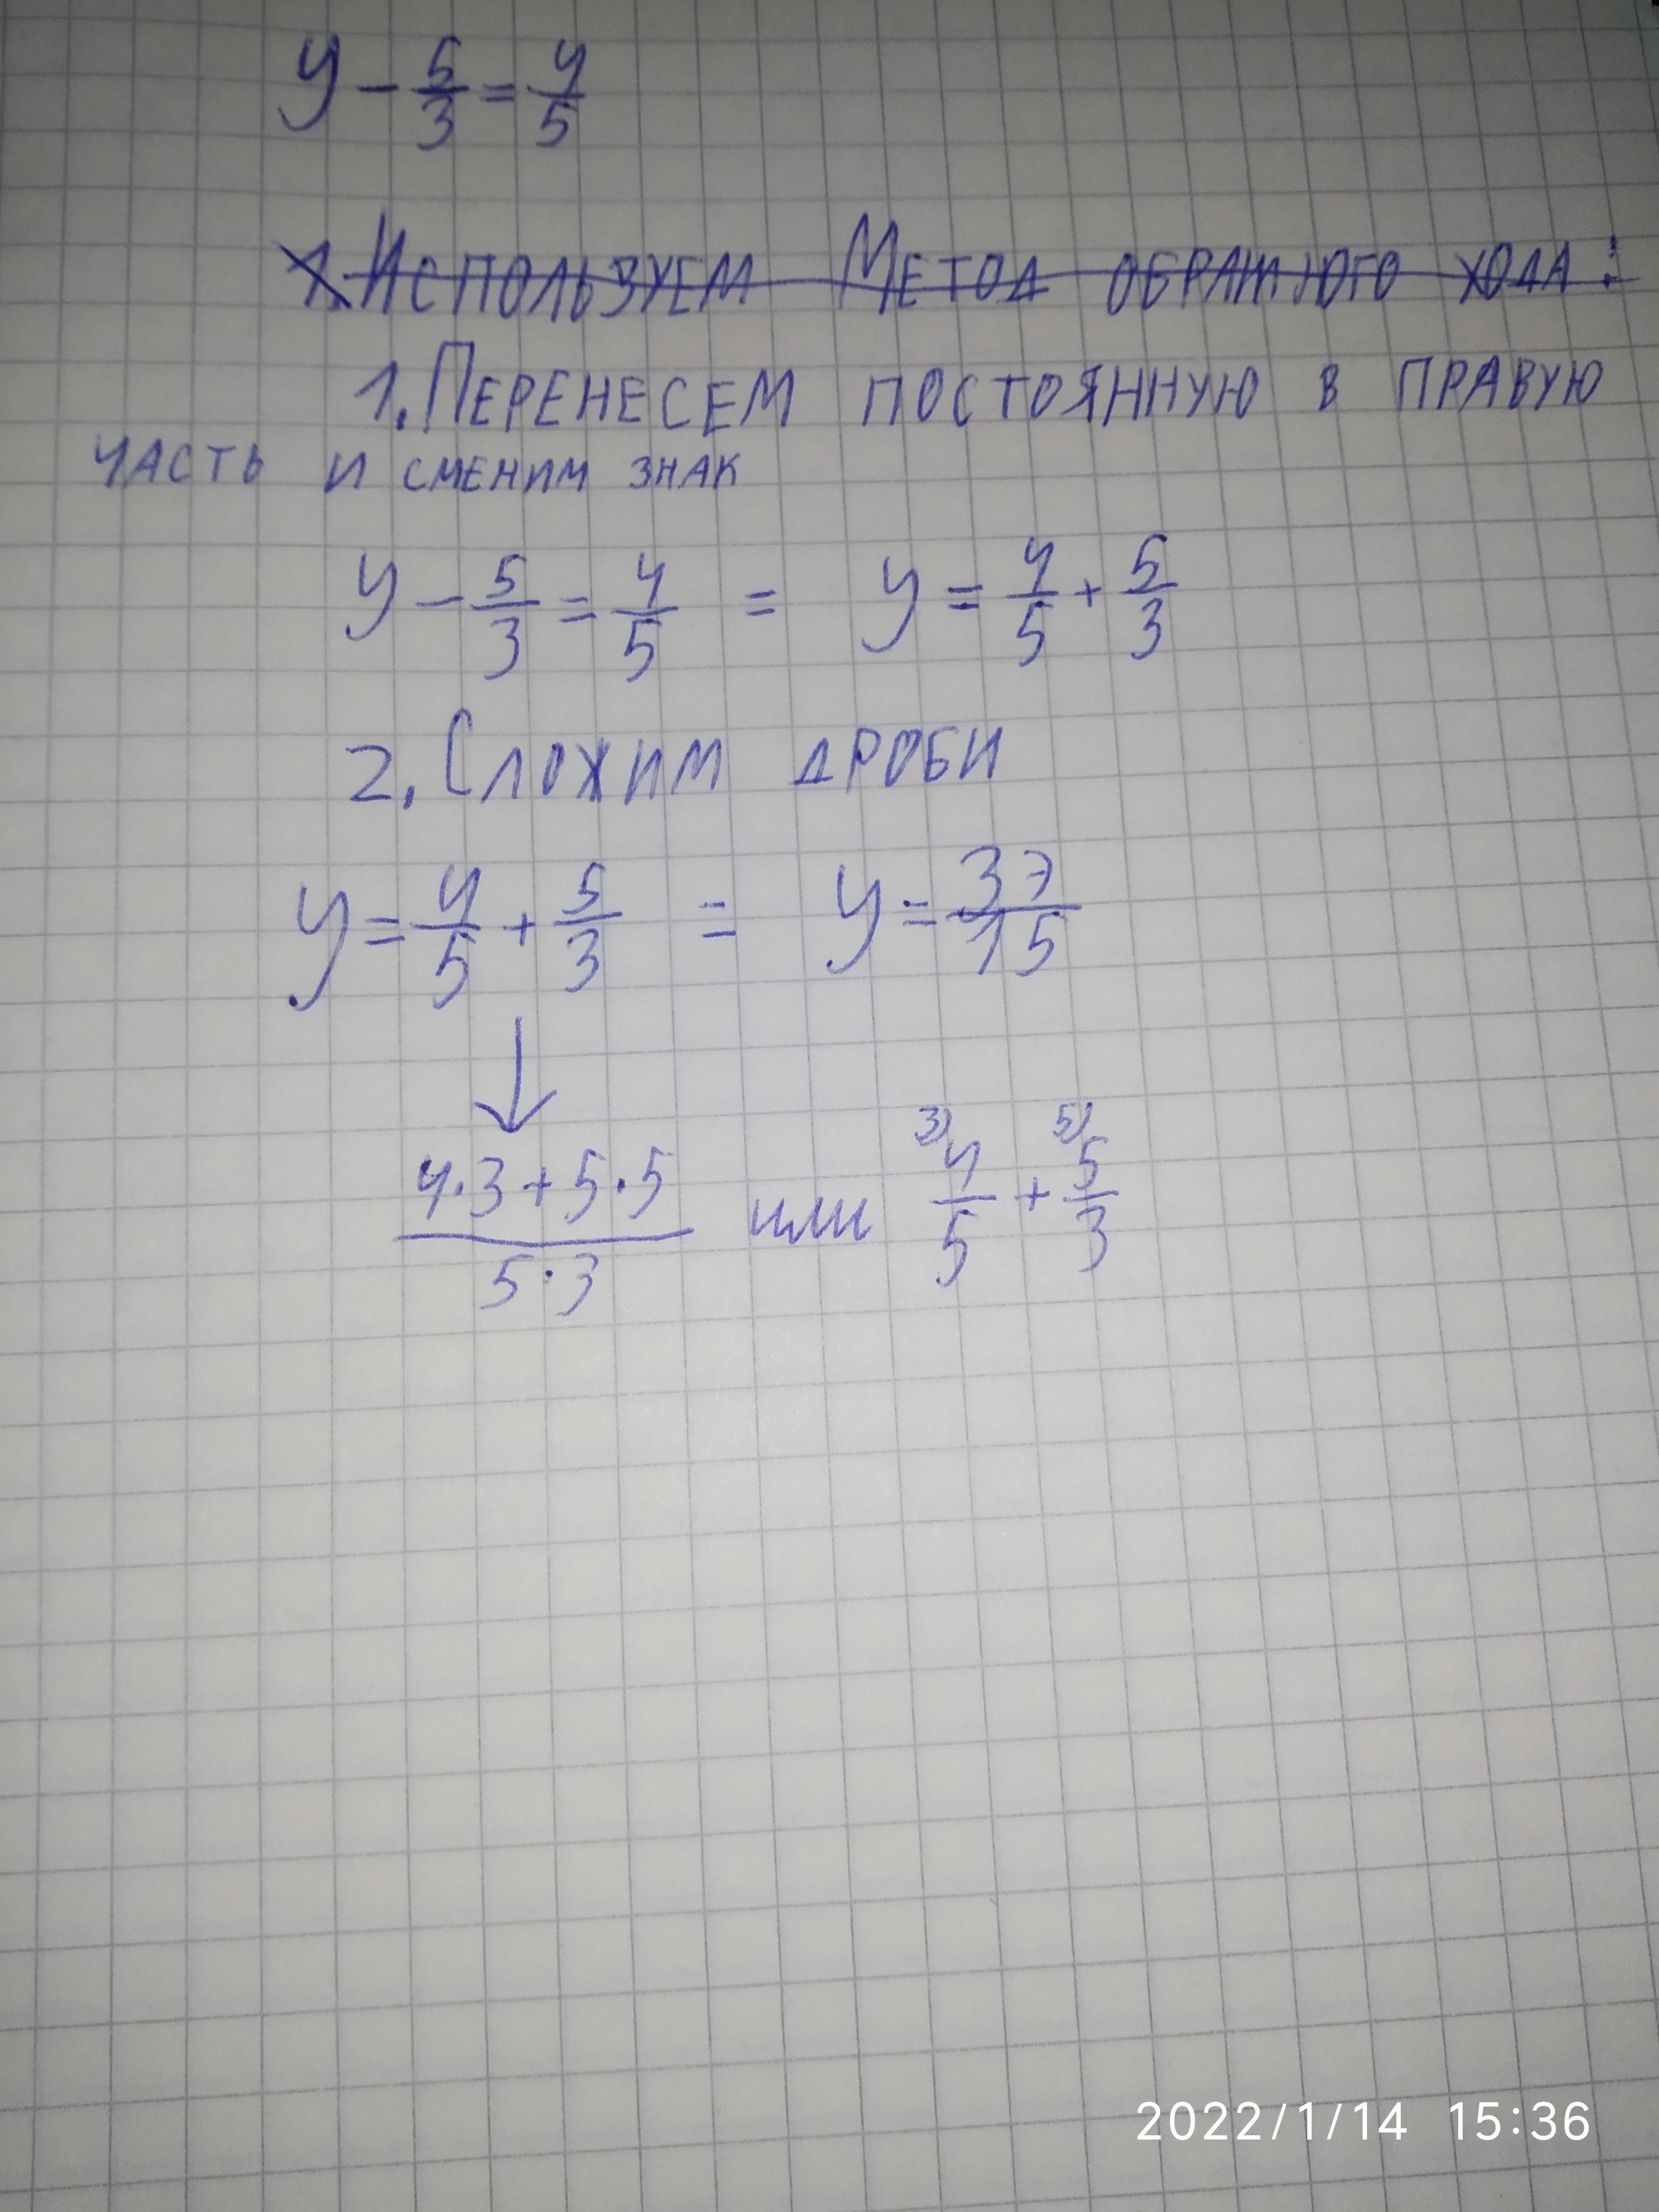 y - 5/3 = 4/5
1. Используем Метод обратного хода:
1. Перенесем постоянную в правую
часть и сменим знак
y - 5/3 = 4/5 = y = 4/5 + 5/3
2. Сложим дроби
y = 4/5 + 5/3 = y = 37/15
↓
(4·3+5·5)/(5·3) или 3) 4/5 + 5) 5/3
2022/1/14 15:36